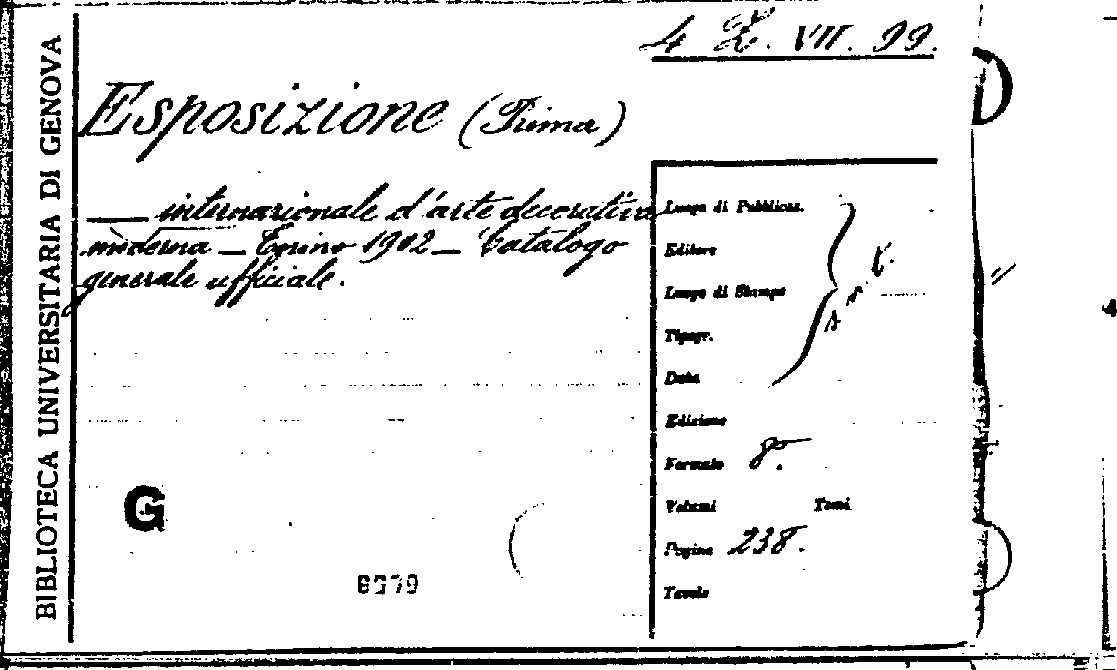 BIBLIOTECA UNIVERSITARIA DI GENOVA
4 Z. VII. 99.
Esposizione (Prima)
— internazionale d'arte decorativa
moderna — Torino 1902 — Catalogo
generale ufficiale.
Luogo di Pubblicaz.
Editore
Luogo di Stampa
Tipogr.
Data
s. n. t.
Edizione
Formato 8º.
Volumi Tomi
Pagine 238.
Tavole
G